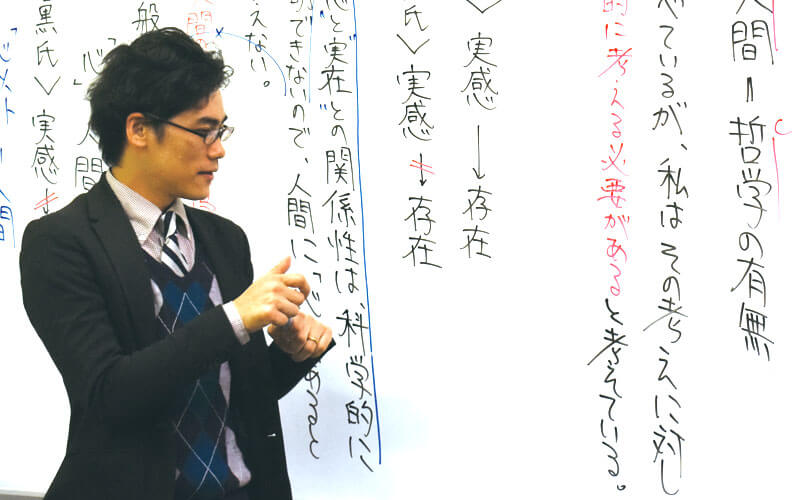 人間＝哲学の有無
べているが、私はその考えに対し
的に考える必要があると考えている。
＞実感→存在
氏＞実感↛存在
と"実在"との関係性は、科学的に
できないので、人間に「あると
えない。
人間
般
「心」人間
黒氏＞実感
人間